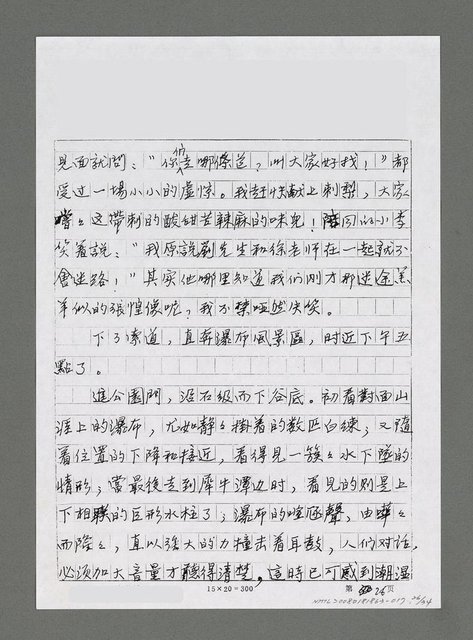 們
見面就問："你走哪條道？叫大家好找！"都
受过一場小小的虛惊。我赶快献上刺梨，大家
嚐々这帶刺的酸甜苦辣麻的味兒！陪同的小李
笑着説："我原説劉先生和徐老师在一起就不
會迷路！"其实他哪里知道我们刚才那迷途羔
羊似的張惶像呢？我不禁啞然失笑。
下了索道，直奔瀑布風景區，时近下午五
點了。
進公園門，沿石級而下谷底。初看對面山
涯上的瀑布，尤如静々掛着的数匹白練；又隨
着位置的下降和接近，看得見一簇々水下墜的
情形；當最後走到犀牛潭边时，看見的則是上
下相联的巨形水柱了；瀑布的喧騰聲，由嘩々
而隆々，直以強大的力撞击着耳鼓，人们对话，
必须加大音量才聽得清楚。這時已可感到潮湿
15×20=300
第 26 頁
NMTL20080181863-017 26/34